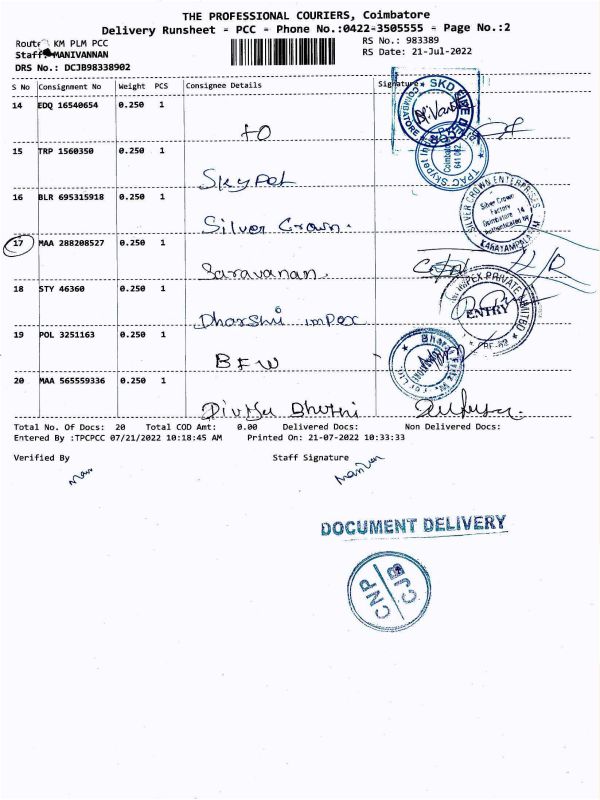 THE PROFESSIONAL COURIERS, Coimbatore
Delivery Runsheet = PCC = Phone No.:0422-3505555 = Page No.:2
Route KM PLM PCC
RS No.: 983389
Staff MANIVANNAN
RS Date: 21-Jul-2022
DRS No.: DCJB98338902
S No Consignment No Weight PCS Consignee Details Signature
14 EDQ 16540654 0.250 1
SKD
COIMBATORE
15 TRP 1560350 0.250 1 Skypet
Coimbatore
641 062
16 BLR 695315918 0.250 1 Silver Crown.
SILVER CROWN ENTERPRISES
Silver Crown
Factory
Coimbatore 14
KARAYAMPALAYAM
17 MAA 288208527 0.250 1 Saravanan.
18 STY 46360 0.250 1 Dharshini impex
IMPEX PRIVATE LIMITED
ENTRY
19 POL 3251163 0.250 1 BFW
20 MAA 565559336 0.250 1
Total No. Of Docs: 20 Total COD Amt: 0.00 Delivered Docs: Non Delivered Docs:
Entered By :TPCPCC 07/21/2022 10:18:45 AM Printed On: 21-07-2022 10:33:33
Verified By Staff Signature
DOCUMENT DELIVERY
CNP
CJB